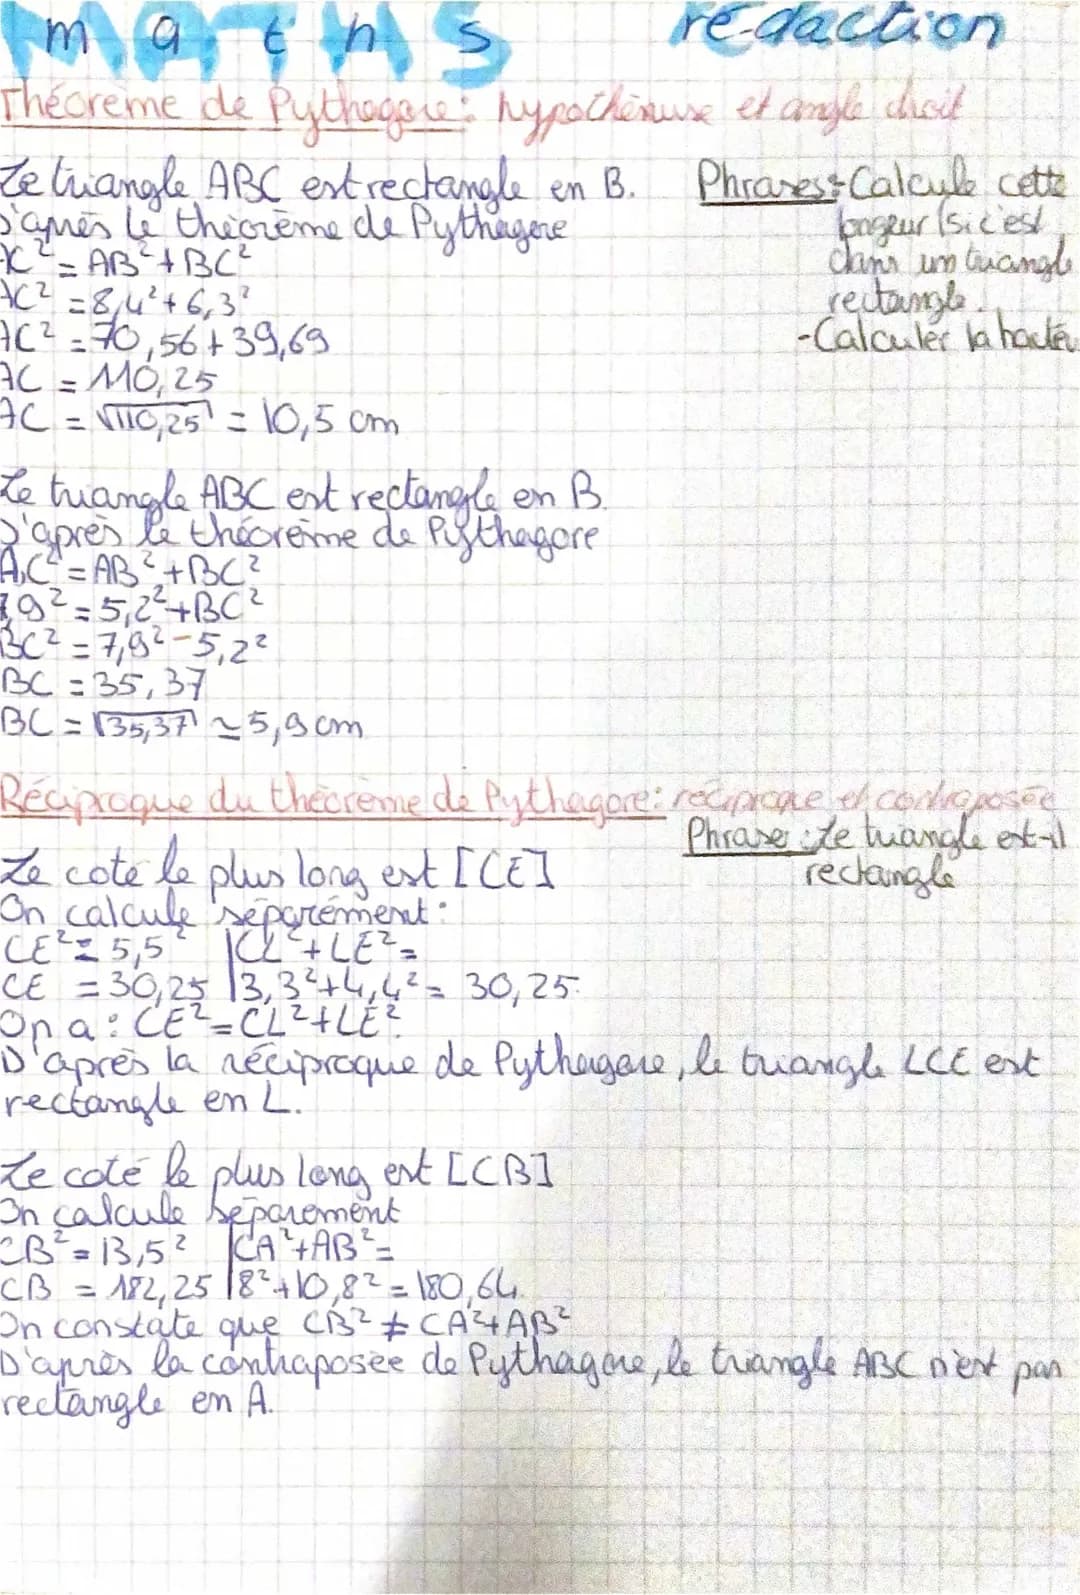 maths rédaction
Théorème de Pythagore: hypothénuse et angle droit
Le triangle ABC est rectangle en B.
D'après le théorème de Pythagore
AC² = AB² + BC²
AC² = 8,4² + 6,3²
AC² = 70,56 + 39,69
AC = 110,25
AC = √110,25 = 10,5 cm
Phrases: Calcule cette
longeur (si c'est
dans un triangle
rectangle.
-Calculer la hauteu
Le triangle ABC est rectangle en B.
D'après le théorème de Pythagore
AC² = AB² + BC²
7,9² = 5,2² + BC²
BC² = 7,9² - 5,2²
BC = 35,37
BC = √35,37 ≃ 5,9 cm
Réciproque du théorème de Pythagore: réciproque et contraposée
Phrase: Le triangle est-il
rectangle
Le coté le plus long est [CE]
On calcule séparément:
CE² = 5,5² | CL² + LE² =
CE = 30,25 | 3,3² + 4,4² = 30,25.
On a : CE² = CL² + LE².
D'après la réciproque de Pythagore, le triangle LCE est
rectangle en L.
Le coté le plus long est [CB]
On calcule séparement
CB² = 13,5² | CA² + AB² =
CB = 182,25 | 8² + 10,8² = 180,64.
On constate que CB² ≠ CA² + AB²
D'après la contraposée de Pythagore, le triangle ABC n'est pas
rectangle en A.